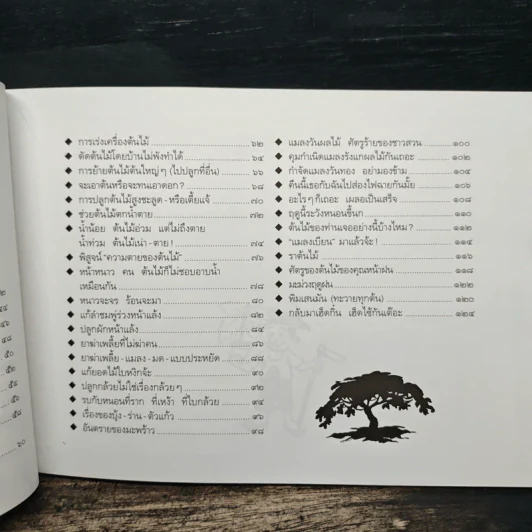 ๕๐
๕๒
๕๔
๕๖
๕๘
๖๐
◆ การเร่งเครื่องต้นไม้ ๖๒
◆ ตัดต้นไม้โดยบ้านไม่พังทำได้ ๖๔
◆ การย้ายต้นไม้ต้นใหญ่ๆ (ไปปลูกที่อื่น) ๖๖
◆ จะเอาต้นหรือจะทนเอาดอก? ๖๘
◆ การปลูกต้นไม้สูงชะลูด - หรือเตี้ยแจ้ ๗๐
◆ ช่วยต้นไม้ตกน้ำตาย ๗๒
◆ น้ำน้อย ต้นไม้อ่วม แต่ไม่ถึงตาย
น้ำท่วม ต้นไม้เน่า - ตาย ! ๗๔
◆ พิสูจน์ "ความตายของต้นไม้" ๗๖
◆ หน้าหนาว คน ต้นไม้ก็ไม่ชอบอาบน้ำ
เหมือนกัน ๗๘
◆ หนาวจะจร ร้อนจะมา ๘๐
◆ แก้ลำชมพู่ร่วงหน้าแล้ง ๘๒
◆ ปลูกผักหน้าแล้ง ๘๔
◆ ยาฆ่าเพลี้ยที่ไม่ฆ่าคน ๘๖
◆ ยาฆ่าเพลี้ย - แมลง - มด - แบบประหยัด ๘๘
◆ แก้ยอดไม้ใบหงิกจ้ะ ๙๐
◆ ปลูกกล้วยไม่ใช่เรื่องกล้วยๆ ๙๒
◆ รบกับหนอนที่ราก ที่เหง้า ที่ใบกล้วย ๙๔
◆ เรื่องของบุ้ง - ร่าน - ตัวแก้ว ๙๖
◆ อันตรายของมะพร้าว ๙๘
◆ แมลงวันผลไม้ ศัตรูร้ายของชาวสวน ๑๐๐
◆ คุมกำเนิดแมลงรังแกผลไม้กันเถอะ ๑๐๒
◆ กำจัดแมลงวันทอง อย่ามองข้าม ๑๐๔
◆ คืนนี้เธอกับฉันไปส่องไฟฉายกันมั้ย ๑๐๖
◆ อะไรๆ ก็เถอะ เผลอเป็นเสร็จ ๑๐๘
◆ ฤดูนี้ระวังหนอนขึ้นก ๑๑๐
◆ ต้นไม้ของท่านเจออย่างนี้บ้างไหม? ๑๑๒
◆ "แมลงเบียน" มาแล้วจ้ะ ! ๑๑๔
◆ ราต้นไม้ ๑๑๖
◆ ศัตรูของต้นไม้ของคุณหน้าฝน ๑๑๘
◆ มะม่วงฤดูฝน ๑๒๒
◆ พิมเสนมัน (ทะวายทุกต้น) ๑๒๐
◆ กลับมาเฮ็ดกิ๋น เฮ็ดใช้กันเต๊อะ ๑๒๔